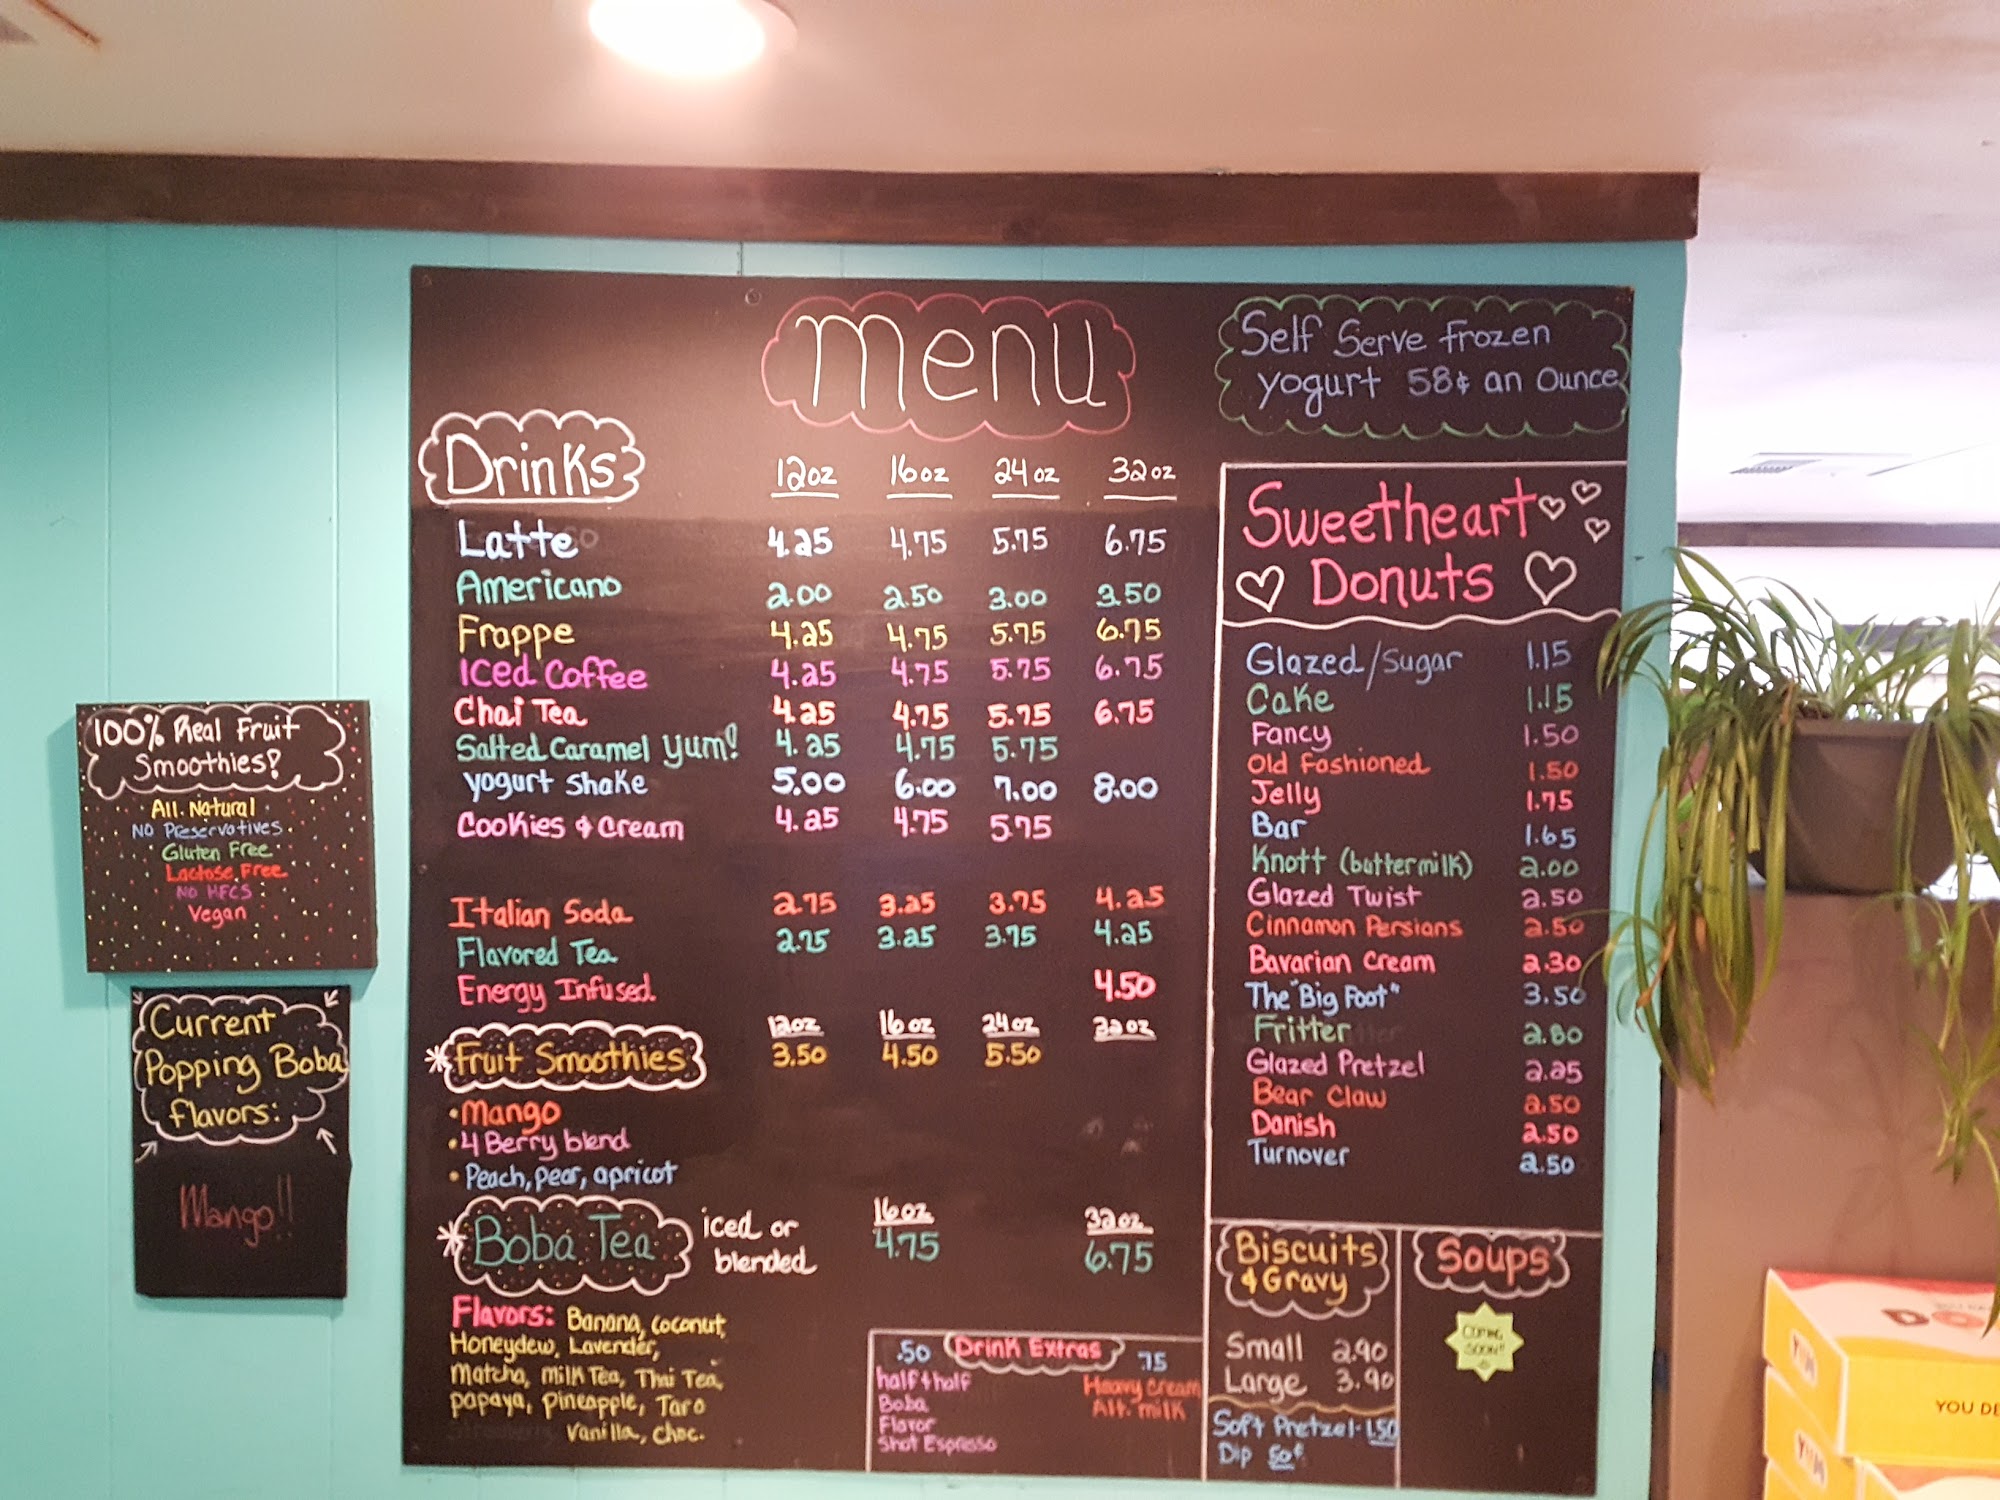 Menu
Self Serve frozen
yogurt 58¢ an Ounce
Drinks
12oz 16oz 24oz 32oz
Latte 4.25 4.75 5.75 6.75
Americano 2.00 2.50 3.00 3.50
Frappe 4.25 4.75 5.75 6.75
Iced Coffee 4.25 4.75 5.75 6.75
Chai Tea 4.25 4.75 5.75 6.75
Salted Caramel Yum! 4.25 4.75 5.75
Yogurt Shake 5.00 6.00 7.00 8.00
Cookies & Cream 4.25 4.75 5.75
Italian Soda 2.75 3.25 3.75 4.25
Flavored Tea 2.75 3.25 3.75 4.25
Energy Infused. 4.50
12oz 16oz 24oz 32oz
*Fruit Smoothies 3.50 4.50 5.50
•Mango
•4 Berry blend
•Peach, pear, apricot
*Boba Tea iced or
blended
16oz 32oz
4.75 6.75
Flavors: Banana, coconut,
Honeydew, Lavender,
Matcha, Milk Tea, Thai Tea,
papaya, Pineapple, Taro
Vanilla, Choc.
.50 Drink Extras .75
half & half
Boba
Flavor
Shot Espresso
Heavy Cream
Alt. milk
Sweetheart
Donuts
Glazed/Sugar 1.15
Cake 1.15
Fancy 1.50
Old Fashioned 1.50
Jelly 1.75
Bar 1.65
Knott (buttermilk) 2.00
Glazed Twist 2.50
Cinnamon Persians 2.50
Bavarian Cream 2.30
The "Big Foot" 3.50
Fritter 2.80
Glazed Pretzel 2.25
Bear Claw 2.50
Danish 2.50
Turnover 2.50
Biscuits
& Gravy
Small 2.90
Large 3.90
Soft Pretzel-1.50
Dip 50¢
Soups
Coming
Soon!!
100% Real Fruit
Smoothies!
All Natural
No Preservatives
Gluten Free
Lactose Free
No HFCS
Vegan
Current
Popping Boba
flavors:
Mango!!
YUM
YOU DE
YUM